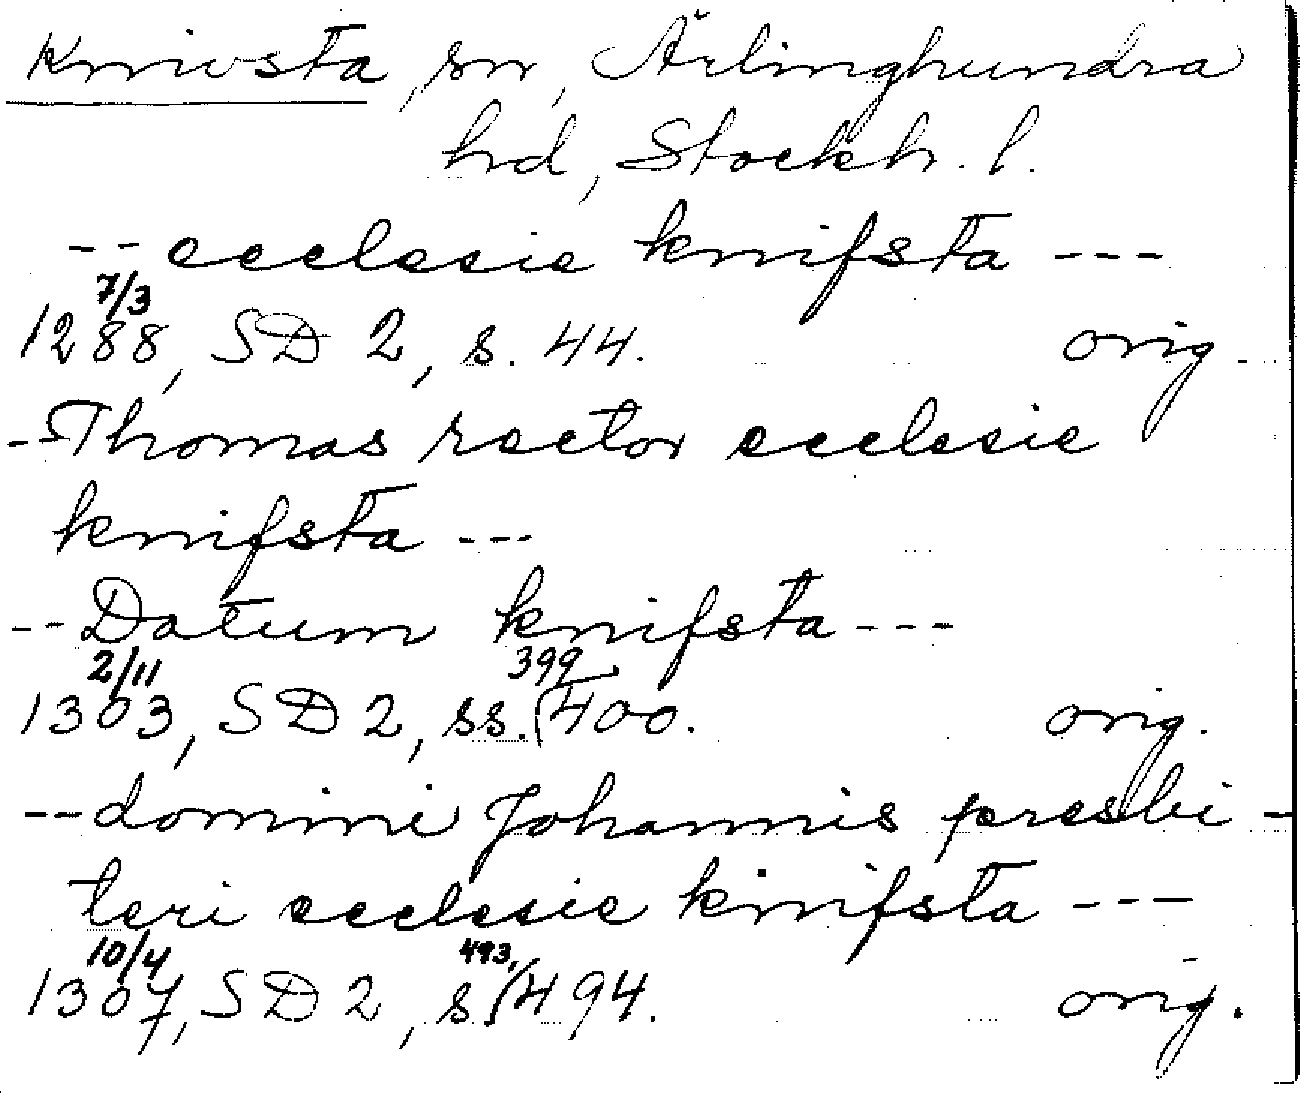 Knivsta, sn, Ärlinghundra
hd, Stockh. l.
-- ecclesie knifsta ---
7/3
1288, SD 2, s. 44. orig.
-- Thomas rector ecclesie
knifsta ---
-- Datum knifsta ---
2/11 399,
1303, SD 2, ss. 400. orig.
-- domini Johannis presbi-
teri ecclesie kinifsta ---
10/4 493,
1307, SD 2, s. 494. orig.